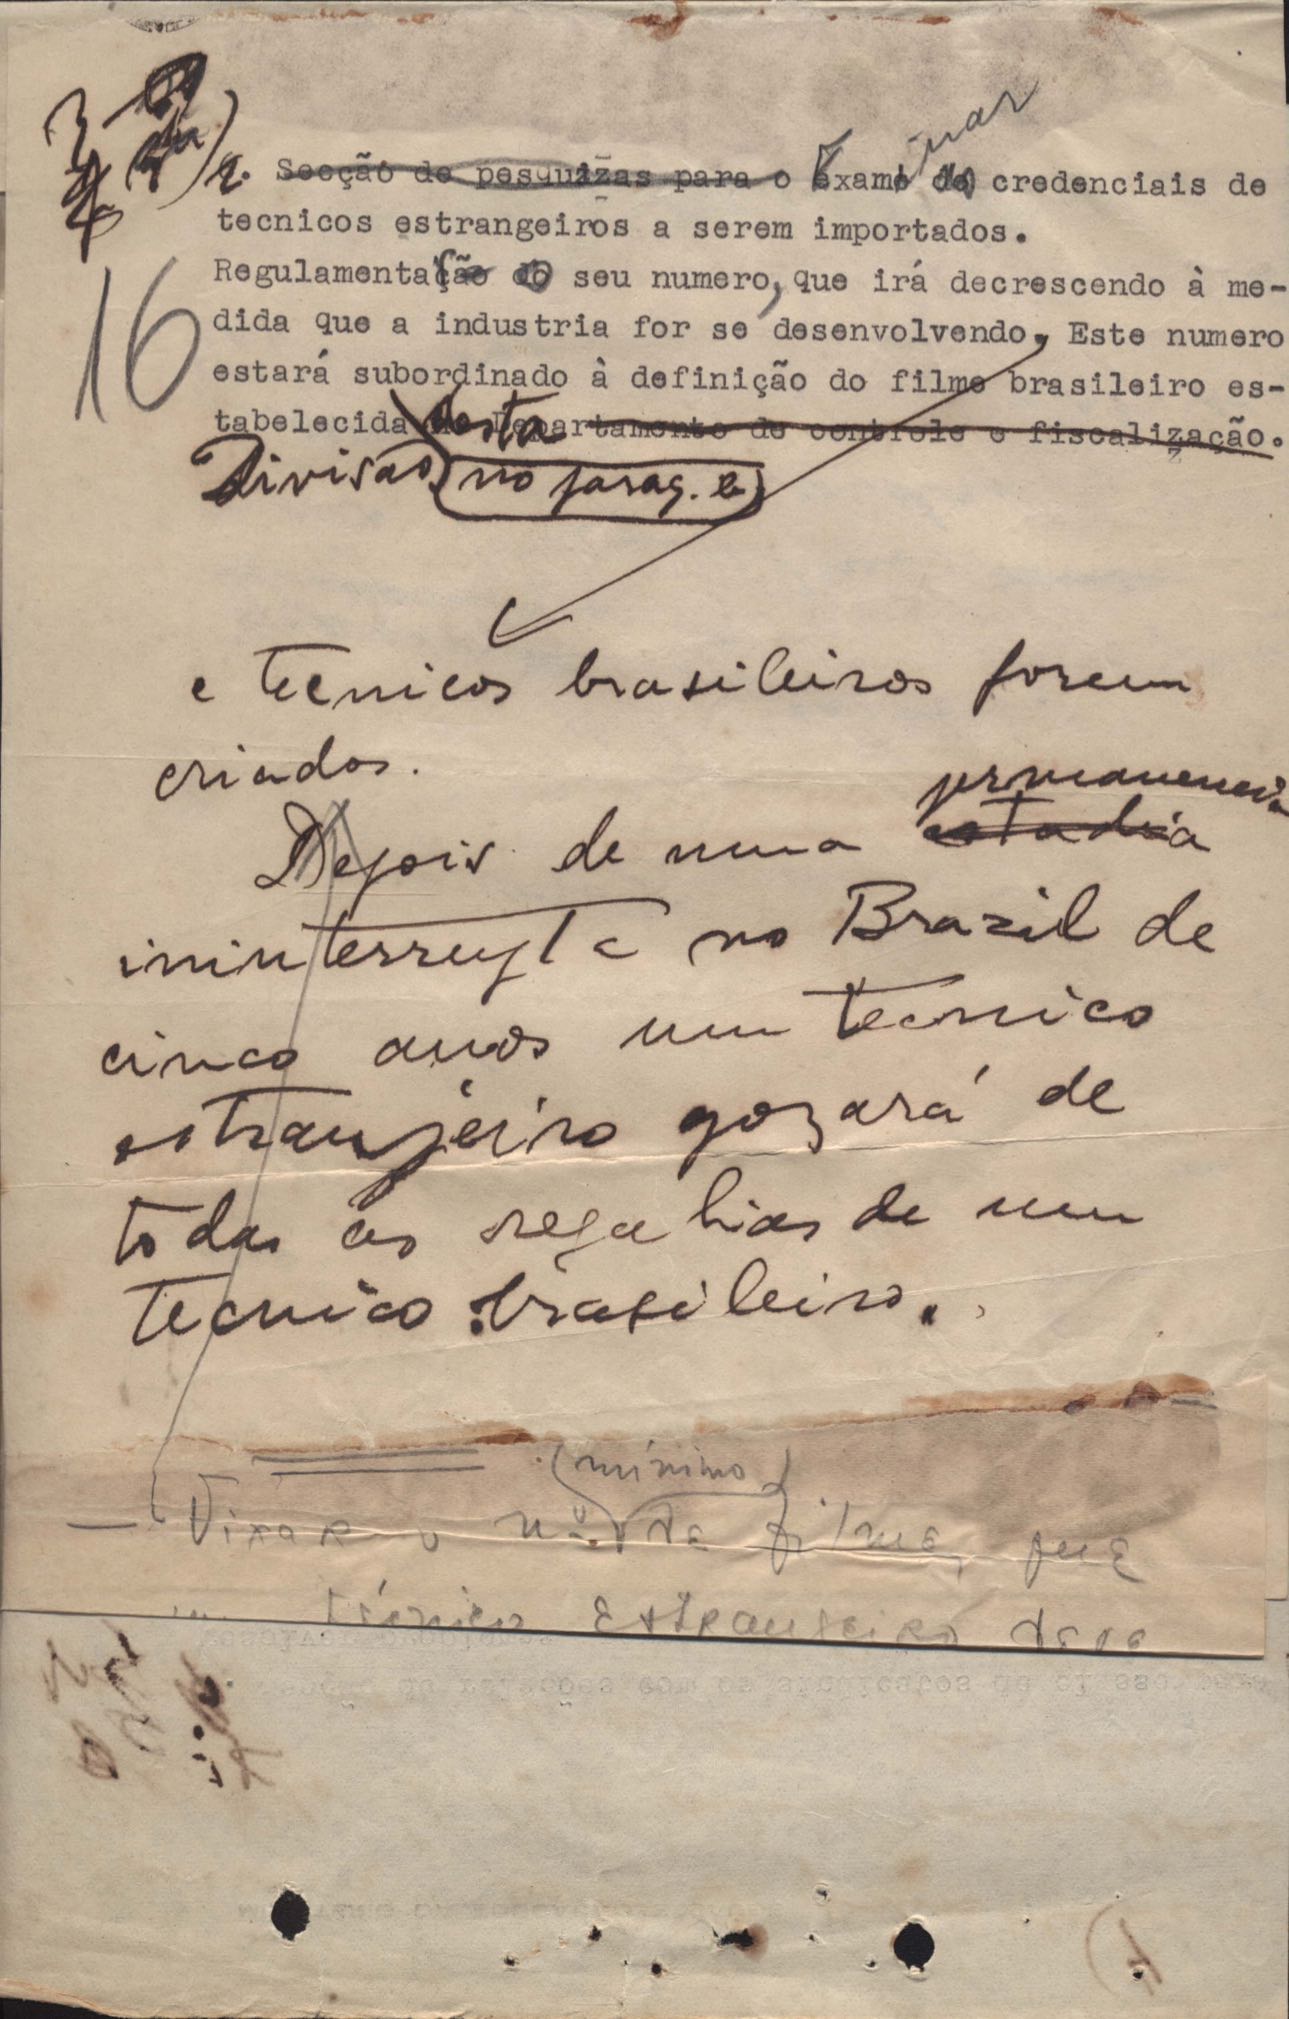 inar
2. Secção de pesquizas para o Exame de credenciais de
tecnicos estrangeiros a serem importados.
16
Regulamentação do seu numero, que irá decrescendo à me-
dida que a industria for se desenvolvendo. Este numero
estará subordinado à definição do filme brasileiro es-
tabelecida desta Departamento de controle e fiscalização.
Divisão no parag. b
e tecnicos brasileiros forem
criados.
permanencia
Depois de uma estadia
ininterrupta no Brazil de
cinco anos um tecnico
estranjeiro gozará de
todas as regalias de um
tecnico brasileiro.
(mínimo)
— Fixar o nº de filmes que
um técnico estrangeiro deve